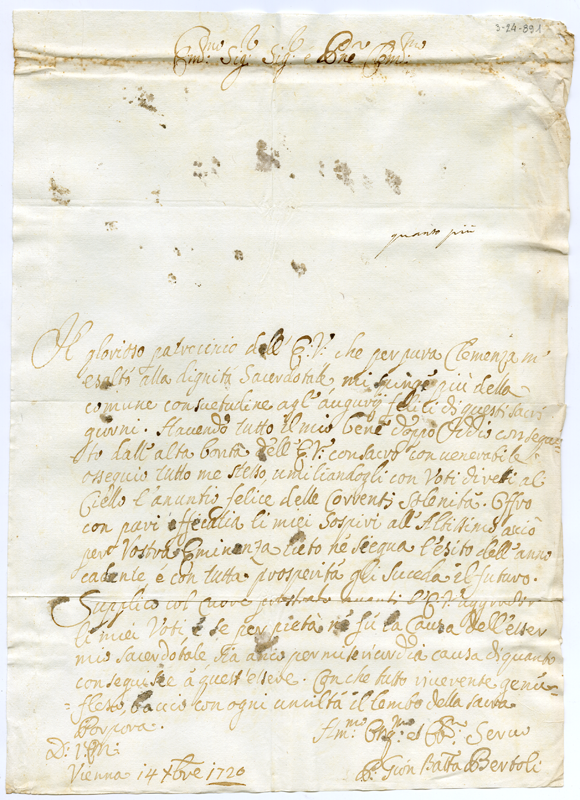 3-24-891
Em.mo Sig.r Sig.r e Pne
quanto più
Il glorioso patrocinio dell' E:V: che per pura Clemenza m'
esaltò alla dignità Sacerdotale, mi spinge più della
comune consuetudine agl' augurÿ felici di questi sacri
giorni. Havendo tutto il mio bene doppo Iddio consegui-
to dall' alta bontà dell' E:V: consacro con venerabile
ossequio tutto me stesso umiliandogli con Voti diretti al
Ciello l'anuntio felice delle correnti Solenità. Offro
con pari li miei Sospiri all' Altissimo acciò
per Vostra Eminenza lieto né segua l'esito dell' anno
cadente é con tutta prosperità gli suceda il futuro.
Supplico col cuore avanti l'E:V:
li miei Voti é se per pietà né fù la causa dell' esser
mio Sacerdotale sia acciò per misericordia causa di quanto
conseguisce à quest' essere. Con che tutto riverente genu-
=flesso baccio con ogni umiltà il lembo della sacra
Porpora.
D: V: Em:
Vienna 14 Xbre 1720
Servo
Gion Batta Bertoli